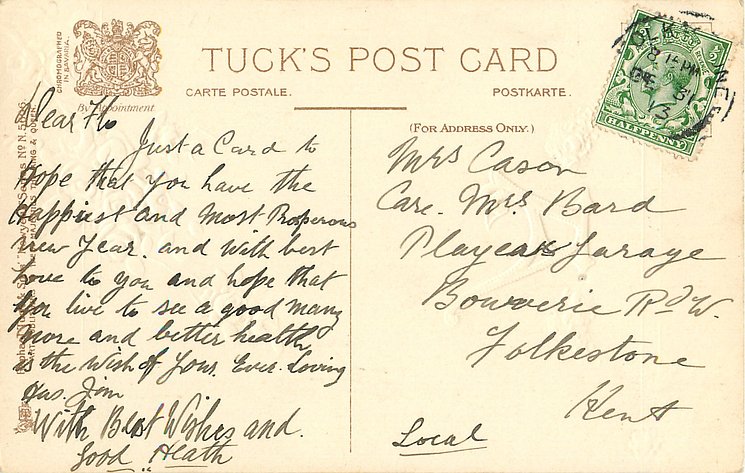 CHROMOGRAPHED
IN BAVARIA.
By Appointment
TUCK'S POST CARD
CARTE POSTALE. POSTKARTE.
(FOR ADDRESS ONLY.)
HALFPENNY
DE 31
13
Dear Flo
Just a Card to
Hope that you have the
Happiest and Most Prosperous
New Year. and With best
Love to you and hope that
you live to see a good many
more and better health
is the Wish of Your. Ever. Loving
Jim
With Best Wishes and.
Good Heath
Mrs Cason
Care. Mrs. Bard
Garage
Bouverie Rd W.
Folkestone
Kent
Local